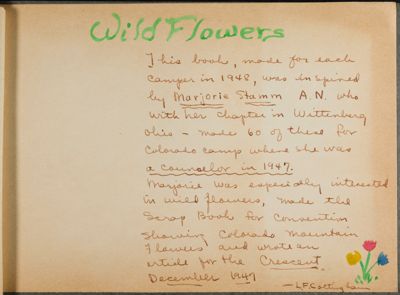 Wild Flowers
This book, made for each
camper in 1948, was inspired
by Marjorie Stamm A.N. who
with her chapter in Wittenberg
Ohio - made 60 of these for
Colorado camp where she was
a counselor in 1947.
Marjorie was especially interested
in wild flowers, made the
Scrap Book for Convention
showing Colorado Mountain
Flowers and wrote an
article for the Crescent.
December 1947
- L.F. Cottingham